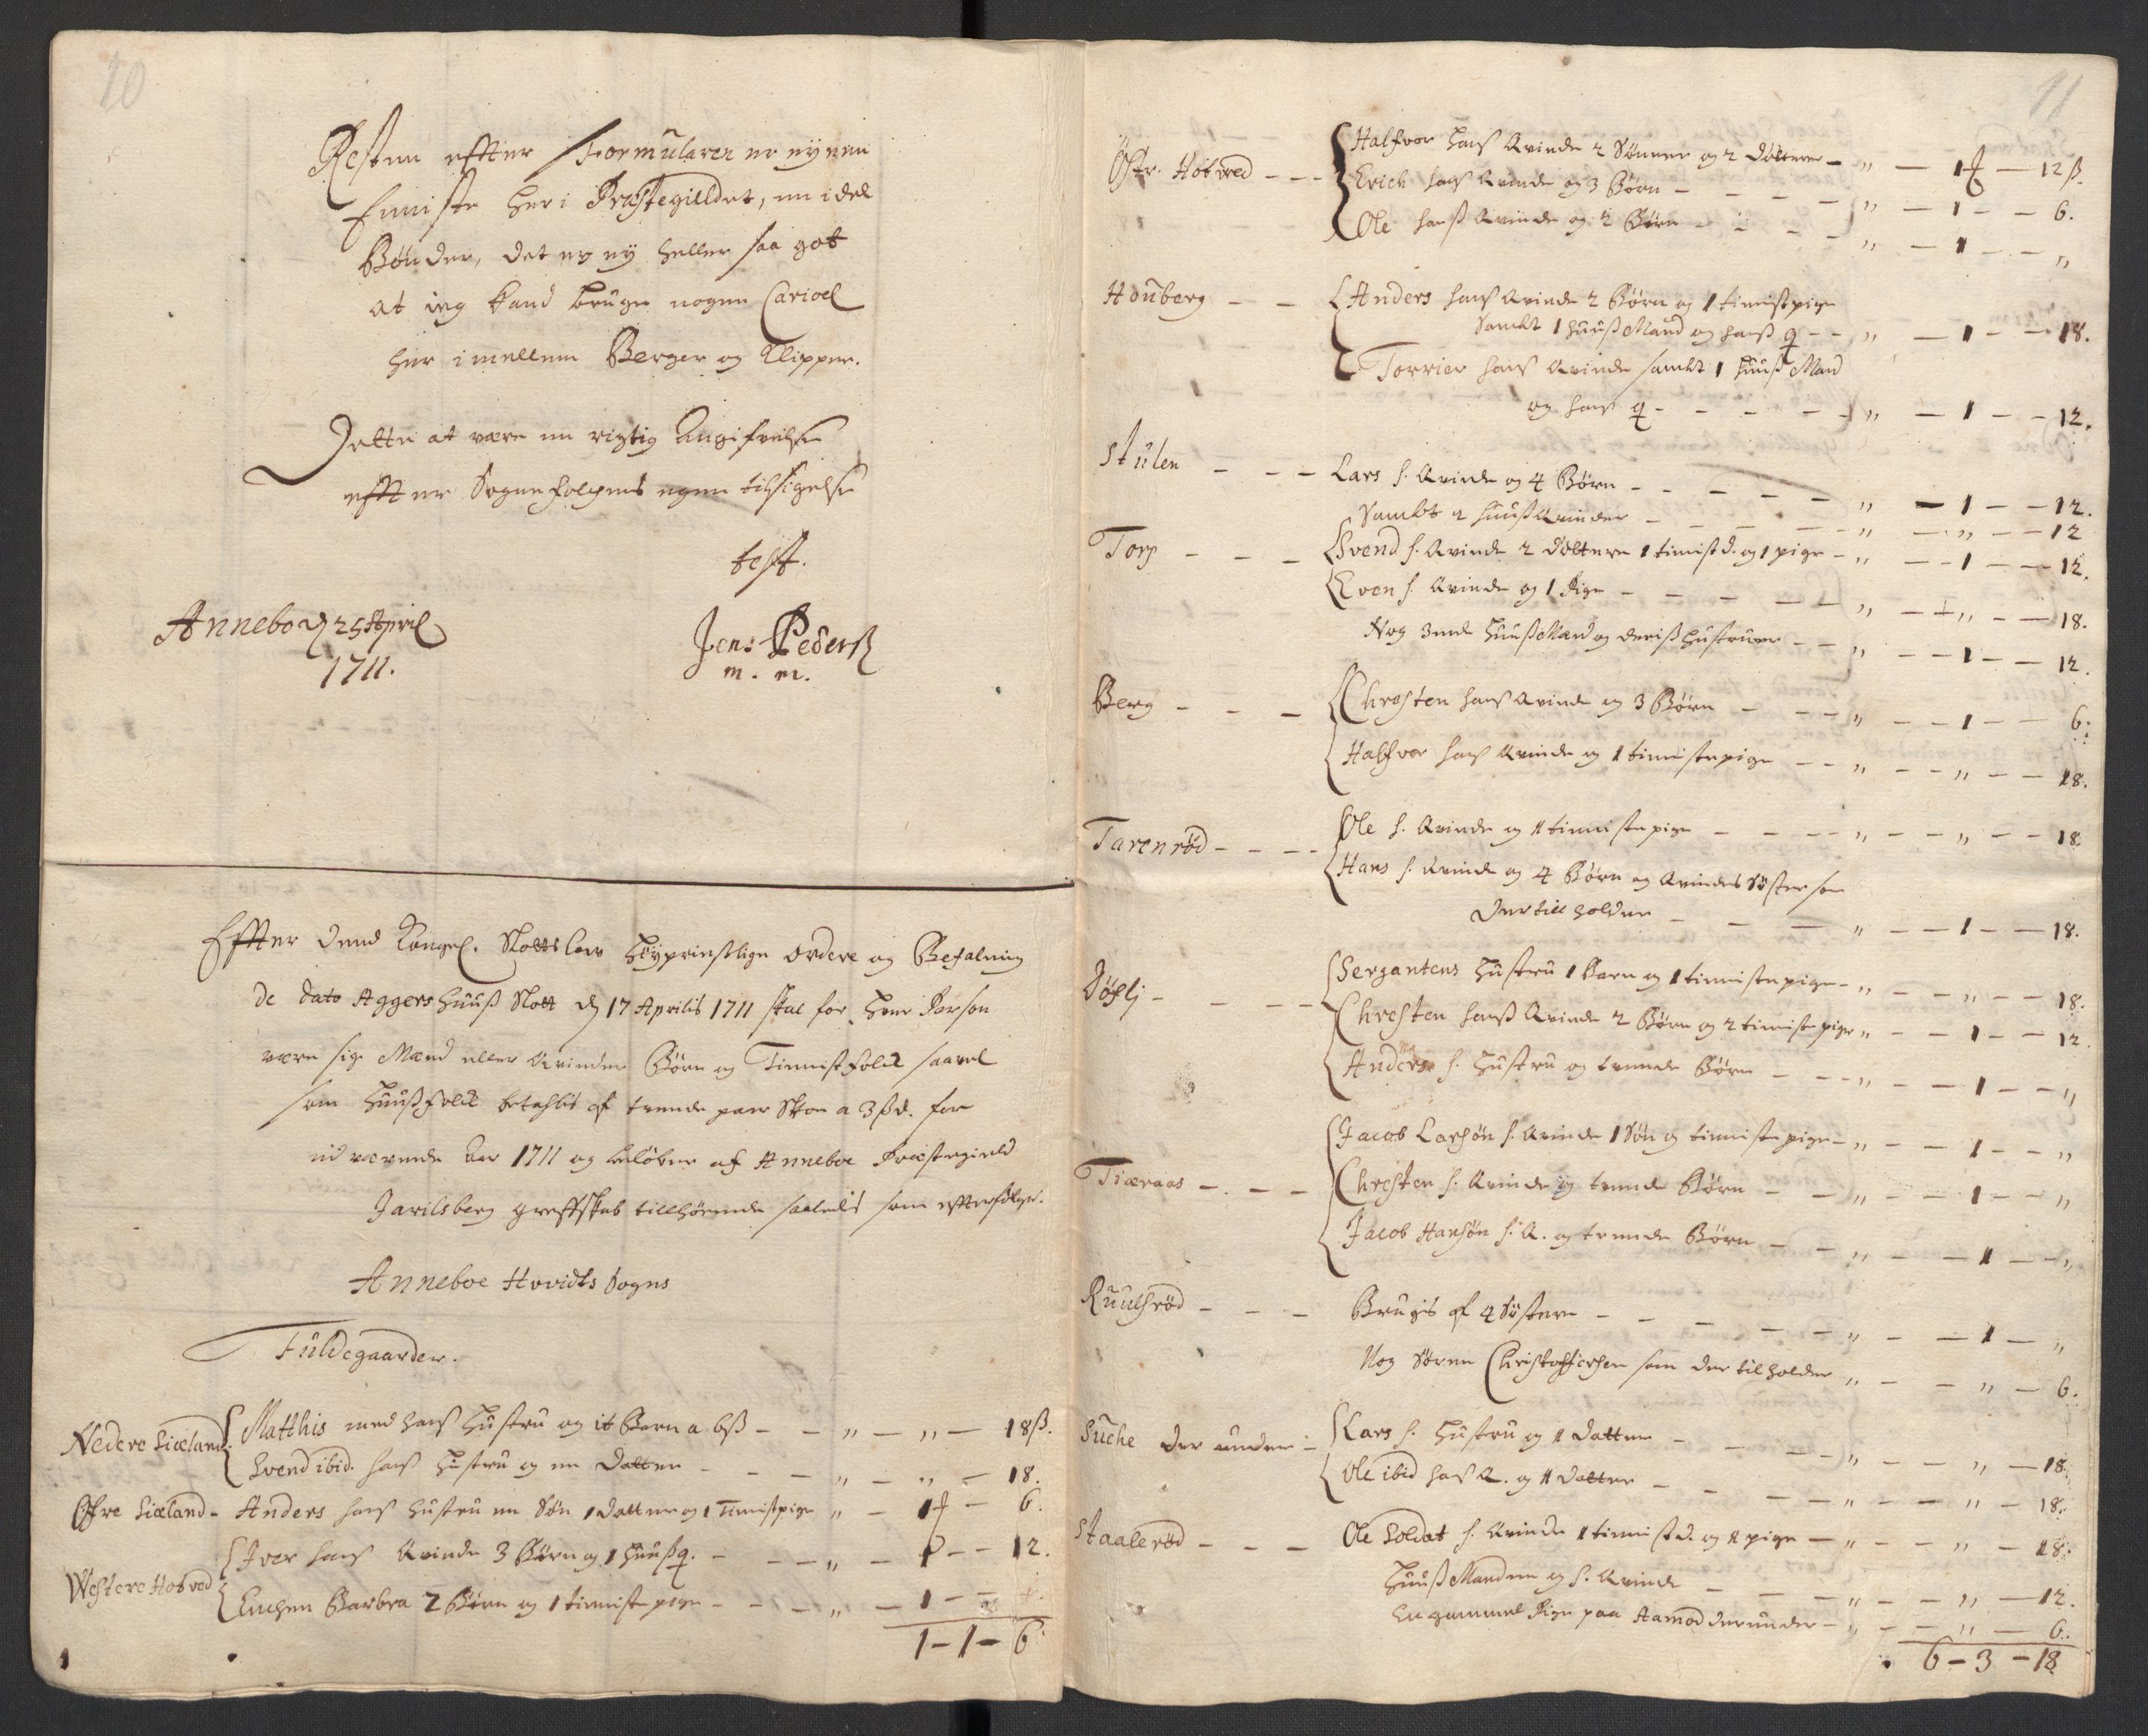 10
Resten effter Formularen er ey nem
heri Præstegilldet, un idel
Bønder, det er ey heller saa got
at ieg kand bruge nogen Cariol
her imellem Berger og Klipper.
Dette at være en rigtig Angifvelse
effter Sognefolchens egen tilsigelse
test.
Annebo d 25 April
1711.
Jens Pederß
m. m.
Effter dend Kongel. Slotts Low ordere og Befalning
de dato Aggershuuß Slott d 17 Aprilis 1711 skal for hver Person
være sig Mænd eller Qvinder Børn og Tienistfolck saavel
som Huußfolck betahlis af tvende paar Skoe a 3 ßd. for
nu værende Aar 1711 og beløber af Anneboe Præstegield
Jarlsberg greffskab tillhørende saaledis som effterfølger.
Anneboe Hovidts Sogns
Fuldegaarder.
Nedere Siœland Matthis med hans Hustru og it Barn a 6ß - - " - " - 18ß.
Svend ibid. hans Hustru og en Datter - - - " - " - 18.
Øfre Siœland - Anders hans hustru en Søn 1 datter og 1 Tienistpige " - 1 - 6.
Westere Hotved Iver hans Qvinde 3 Børn og 1 Huußq. - - - " - 1 - - 12.
Enchen Barbra 2 Børn og 1 tieniste pige - - - " - 1 -
1 - 1 - 6
11
Østr. Hotved - - - Halfvor hans Qvinde 2 Sønner og 2 døttere - " - 1 - 12 ß.
Erich hans Qvinde og 3 Børn - - - - " - 1 - - 6.
Ole hanß Qvinde og 2 Børn - - - - " - 1 - - "
Houberg - - Anders hans Qvinde 2 Børn og 1 tienistpige
Sambt 1 huußMand og hanß q - - " - 1 - - 18.
Torrier hans Qvinde sambt 1 huuß Mand
og hans q - - - - - " - 1 - - 12.
Stulen - - - Lars h. Qvinde og 4 Børn - - - - - " - 1 - - 12.
Sambt 2 huußQvinder - - - - " - " - - 12
Torp - - - Svend h. Qvinde 2 døttere 1 tienist d. og 1 pige - " - - 1 - - 12.
Even h. Qvinde og 1 Pige - - - - - " - " - - 18.
Nog 3nde HuußMænd og deriß hustruer - - " - - 1 - - 12.
Berg - - - Christen hans Qvinde og 3 Børn - - - " - - 1 - - 6.
Halfvor hans Qvinde og 1 tienistepige - - " - - " - - 18.
Tarenrød - - - - Ole h. Qvinde og 1 tieniste pige - - - - " - - " - - 18
Hans h. Qvinde og 4 Børn og Qvindes Søster som
der till holder - - - " - - 1 - - 18.
- - - - Sergantens Hustru 1 Barn og 1 tienistepige - " - - " - - 18.
Christen hanß Qvinde 2 Børn og 2 tieniste piger " - - 1 - - 12.
Anders h. Hustru og tvende Børn - - - " - - 1 - - "
Tiæraas - - - Jacob Larsøn h. Qvinde 1 Søn og tieniste pige - " - - 1 - - "
Christen h. Qvinde og tvende Børn - - " - - 1 - - "
Jacob Hansøn h. Q. og tvende Børn - - " - - 1 - - "
Ruulsrød - - - Brugis af 4 Søstere - - - - - " - - 1 - "
Nog Søren Christophersen som der tilholder " - - " - 6.
Suche der under - Lars h. Hustru og 1 datter - - - - " - - " - 18.
Ole ibid hans Q. og 1 datter - - - - " - - " - 18.
Staalerød - - - Ole Soldat h. Qvinde 1 tienist d. og 1 pige - " - - " - 18.
HuußManden og h. Qvinde - - - " - - " - 12.
En gammel Pige paa Aamod derunder - " - - " - 6.
6 - 3 - 18